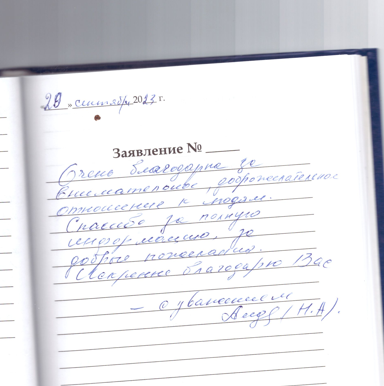 29 » сентября 2023 г.
Заявление №
Очень благодарна за
внимательное, доброжелательное
отношение к людям.
Спасибо за полную
информацию, за
добрые пожелания.
Искренне благодарю Вас
– с уважением
(Н.А).